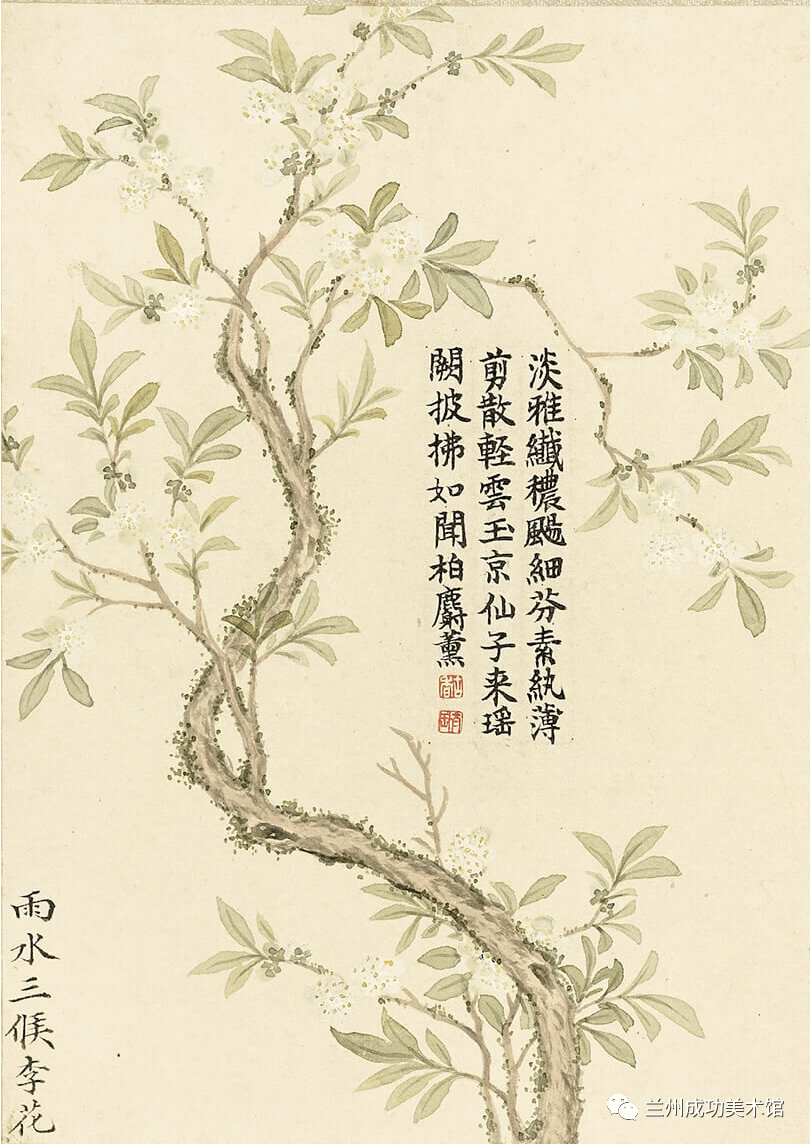 淡雅纖穠颺細芬素紈薄
剪散軽雲玉京仙子来瑶
闕披拂如聞柏麝薰
雨水三候李花
兰州成功美术馆